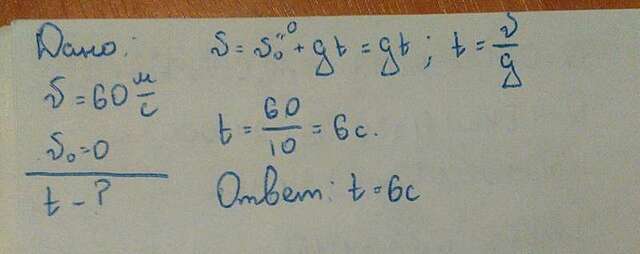 Дано:
υ = 60 м/с
υ₀ = 0
t - ?
υ = υ₀⁼⁰ + gt = gt ; t = υ/g
t = 60/10 = 6с.
Ответ: t = 6с